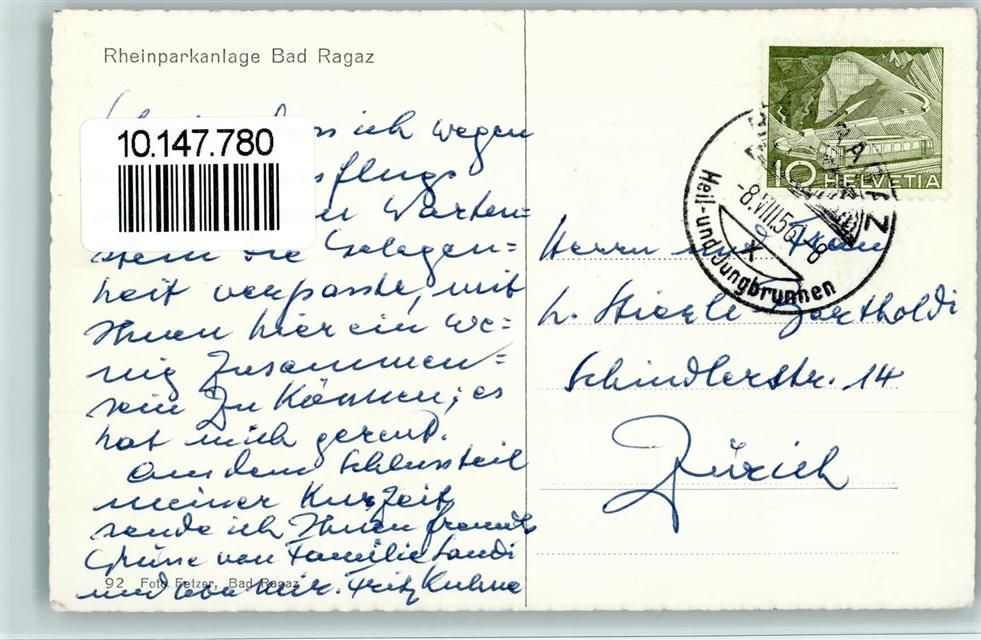 Rheinparkanlage Bad Ragaz
dass ich wegen
10.147.780
Ausflugs
Warten=
stein die Gelegen=
heit verpasste, mit
Ihnen hier ein we=
nig zusammen=
sein zu können; es
hat mich gereut.
Aus dem Schlussteil
meiner Kurzeit
sende ich Ihnen freundl.
Grüsse von Familie Landi
und von mir. Fritz Kuhne
92 Foto Fetzer, Bad Ragaz
10 HELVETIA
RAGAZ
-8.VIII.56 -8
Heil- und Jungbrunnen
Herrn und Frau
h. Stierle-Bertholdi
Schindlerstr. 14
Zürich